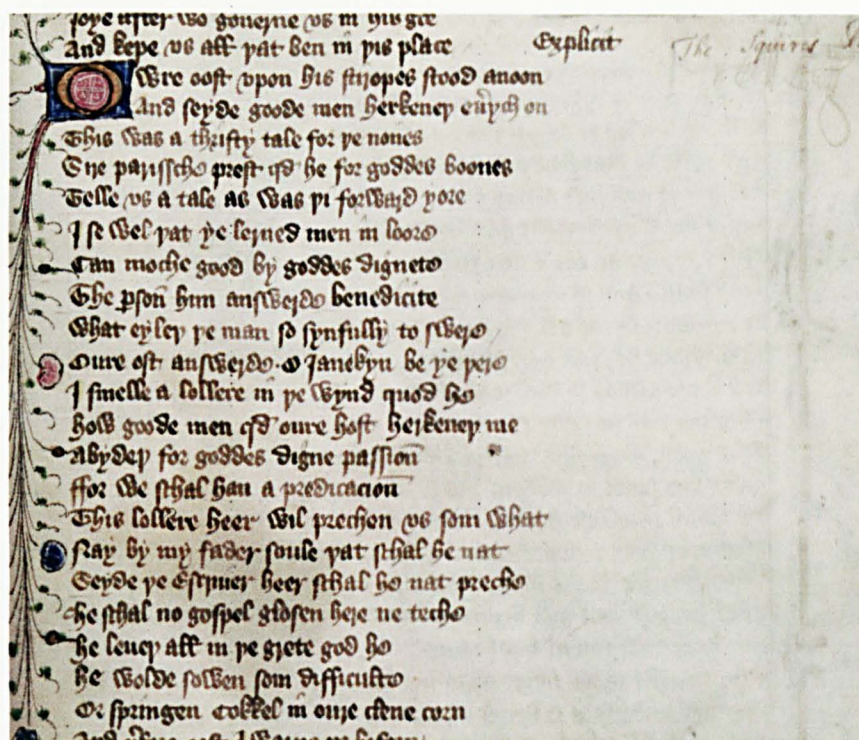 Joye after wo gouerne vs in his gͣce
And kepe vs aƚƚ þat ben in þis place Explicit The Squires
Owre oost vpon his stiropes stood anoon
And seyde goode men herkeneþ eu̾ych on
This was a thrifty tale for þe nones
Sire parissche prest qd̵ he for goddes boones
Telle vs a tale as was þi forward ȝore
I se wel þat ȝe lerned men in loore
Can moche good by goddes dignete
The ꝑson him answerde benedicite
What eyleþ þe man so synfully to swere
Oure ost answerde · O Iankyn be ȝe þere
I smelle a lollere in þe wynd quod he
how goode men qd̵ oure host herkeneþ me
Abydeþ for goddes digne passiou̅n
ffor we schal han a predicaciou̅n
This lollere heer wil prechen vs som what
Nay by my fader soule þat schal he nat
Seyde þe heer schal he nat preche
he schal no gospel glosen here ne teche
he leueþ aƚƚ in þe grete god he
he wolde sowen som difficulte
Or springen Cokkel in oure clene corn